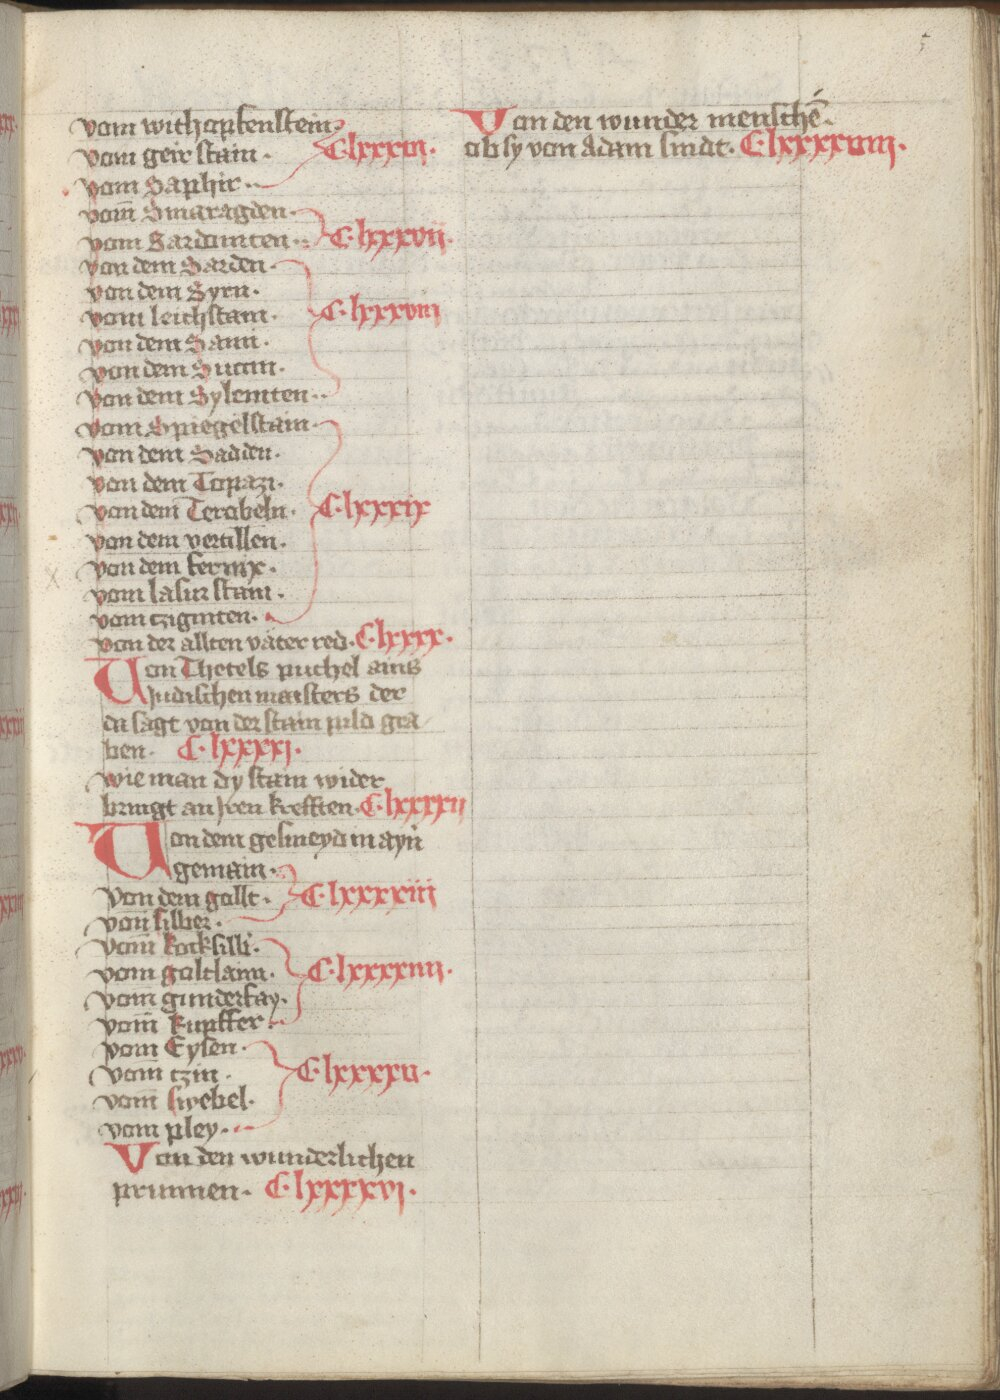 vom withopfenstein
vom geir stain . C·lxxxvj.
vom Saphir ..
vom̄ Smaragden.
vom Sardoinicen.. C·lxxxvij.
von dem Sarden.
von dem Syrn.
vom leichstain. C·lxxxviij
von dem Sann.
von dem Succin.
von dem Syleniten..
vom Spiegelstain.
von dem Sadden.
von dem Topazi.
von dem Terobeln. C·lxxxix
von dem vertillen.
von dem fernix.
vom lasur stain .
vom cziginten.
von der allten väter red. C·lxxxx.
Von Thetels puchel ains
Judischen maisters der
da sagt von der stain pild gra
ben. C·lxxxxj.
wie man dy stain wider
bringt an Jren krefften. C·lxxxxij
Von dem gesmeyd in ayn̄
gemain.
Von dem gollt. C·lxxxxiij
von silber.
vom̄ kocksilb̄.
vom goltlaim. C·lxxxxiiij.
vom̄ gunderfay.
vom̄ kupffer.
vom Eysen.
vom̄ czin . C·lxxxxv.
vom̄ swebel.
vom pley.
Von den wunderlichen
prunnen. C·lxxxxvj.
Von den wunder menschē.
ob sy von Adam sindt. C·lxxxxviiij.